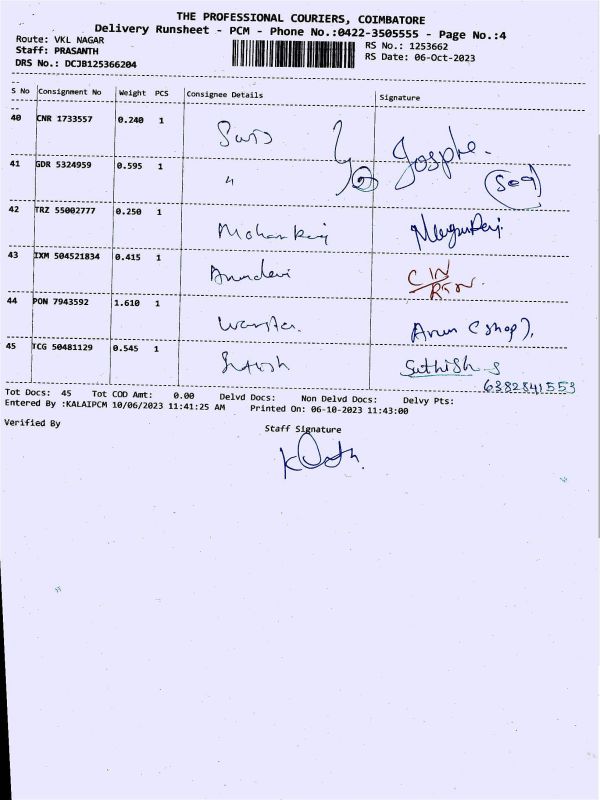 THE PROFESSIONAL COURIERS, COIMBATORE
Delivery Runsheet - PCM - Phone No.:0422-3505555 - Page No.:4
Route: VKL NAGAR
Staff: PRASANTH
DRS No.: DCJB125366204
RS No.: 1253662
RS Date: 06-Oct-2023
S No Consignment No Weight PCS Consignee Details Signature
40 CNR 1733557 0.240 1 Josphe.
41 GDR 5324959 0.595 1 " 2
42 TRZ 55002777 0.250 1 Mohan Raj
43 IXM 504521834 0.415 1 Anudevi CIN
RTN.
44 PON 7943592 1.610 1 Arun (shop).
45 TCG 50481129 0.545 1 Satish Suthish S
6382841553
Tot Docs: 45 Tot COD Amt: 0.00 Delvd Docs: Non Delvd Docs: Delvy Pts:
Entered By :KALAIPCM 10/06/2023 11:41:25 AM Printed On: 06-10-2023 11:43:00
Verified By
Staff Signature